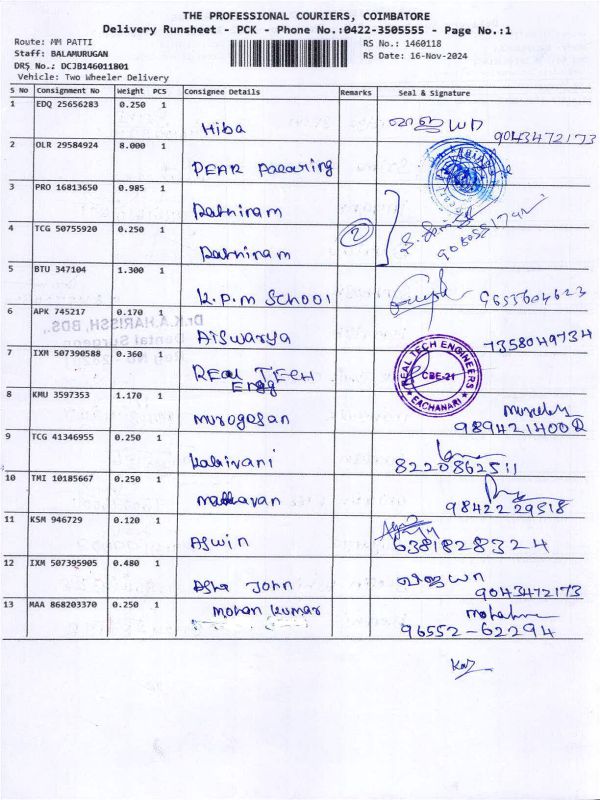 THE PROFESSIONAL COURIERS, COIMBATORE
Delivery Runsheet - PCK - Phone No.:0422-3505555 - Page No.:1
Route: MM PATTI
RS No.: 1460118
Staff: BALAMURUGAN
RS Date: 16-Nov-2024
DRS No.: DCJB146011801
Vehicle: Two Wheeler Delivery
S No Consignment No Weight PCS Consignee Details Remarks Seal & Signature
1 EDQ 25656283 0.250 1 Hiba 9043472173
2 OLR 29584924 8.000 1 PEAR
3 PRO 16813650 0.985 1 Rathinam
4 TCG 50755920 0.250 1 Rathinam 2
5 BTU 347104 1.300 1 K.P.M School
6 APK 745217 0.170 1 Aiswarya 7358049734
Dr.K.A.HARISSH, BDS.,
Dental Surgeon
7 IXM 507390588 0.360 1 REAL TECH Engg
REAL TECH ENGINEERS
CBE-21
EACHANARI
8 KMU 3597353 1.170 1 Murogasan
9 TCG 41346955 0.250 1 Kabivani 8220862511
10 TMI 10185667 0.250 1 Madhavan 9842229518
11 KSM 946729 0.120 1 Aswin 6381828324
12 IXM 507395905 0.480 1 Asha John 9043472173
13 MAA 868203370 0.250 1 Mohan Kumar 96552-62294